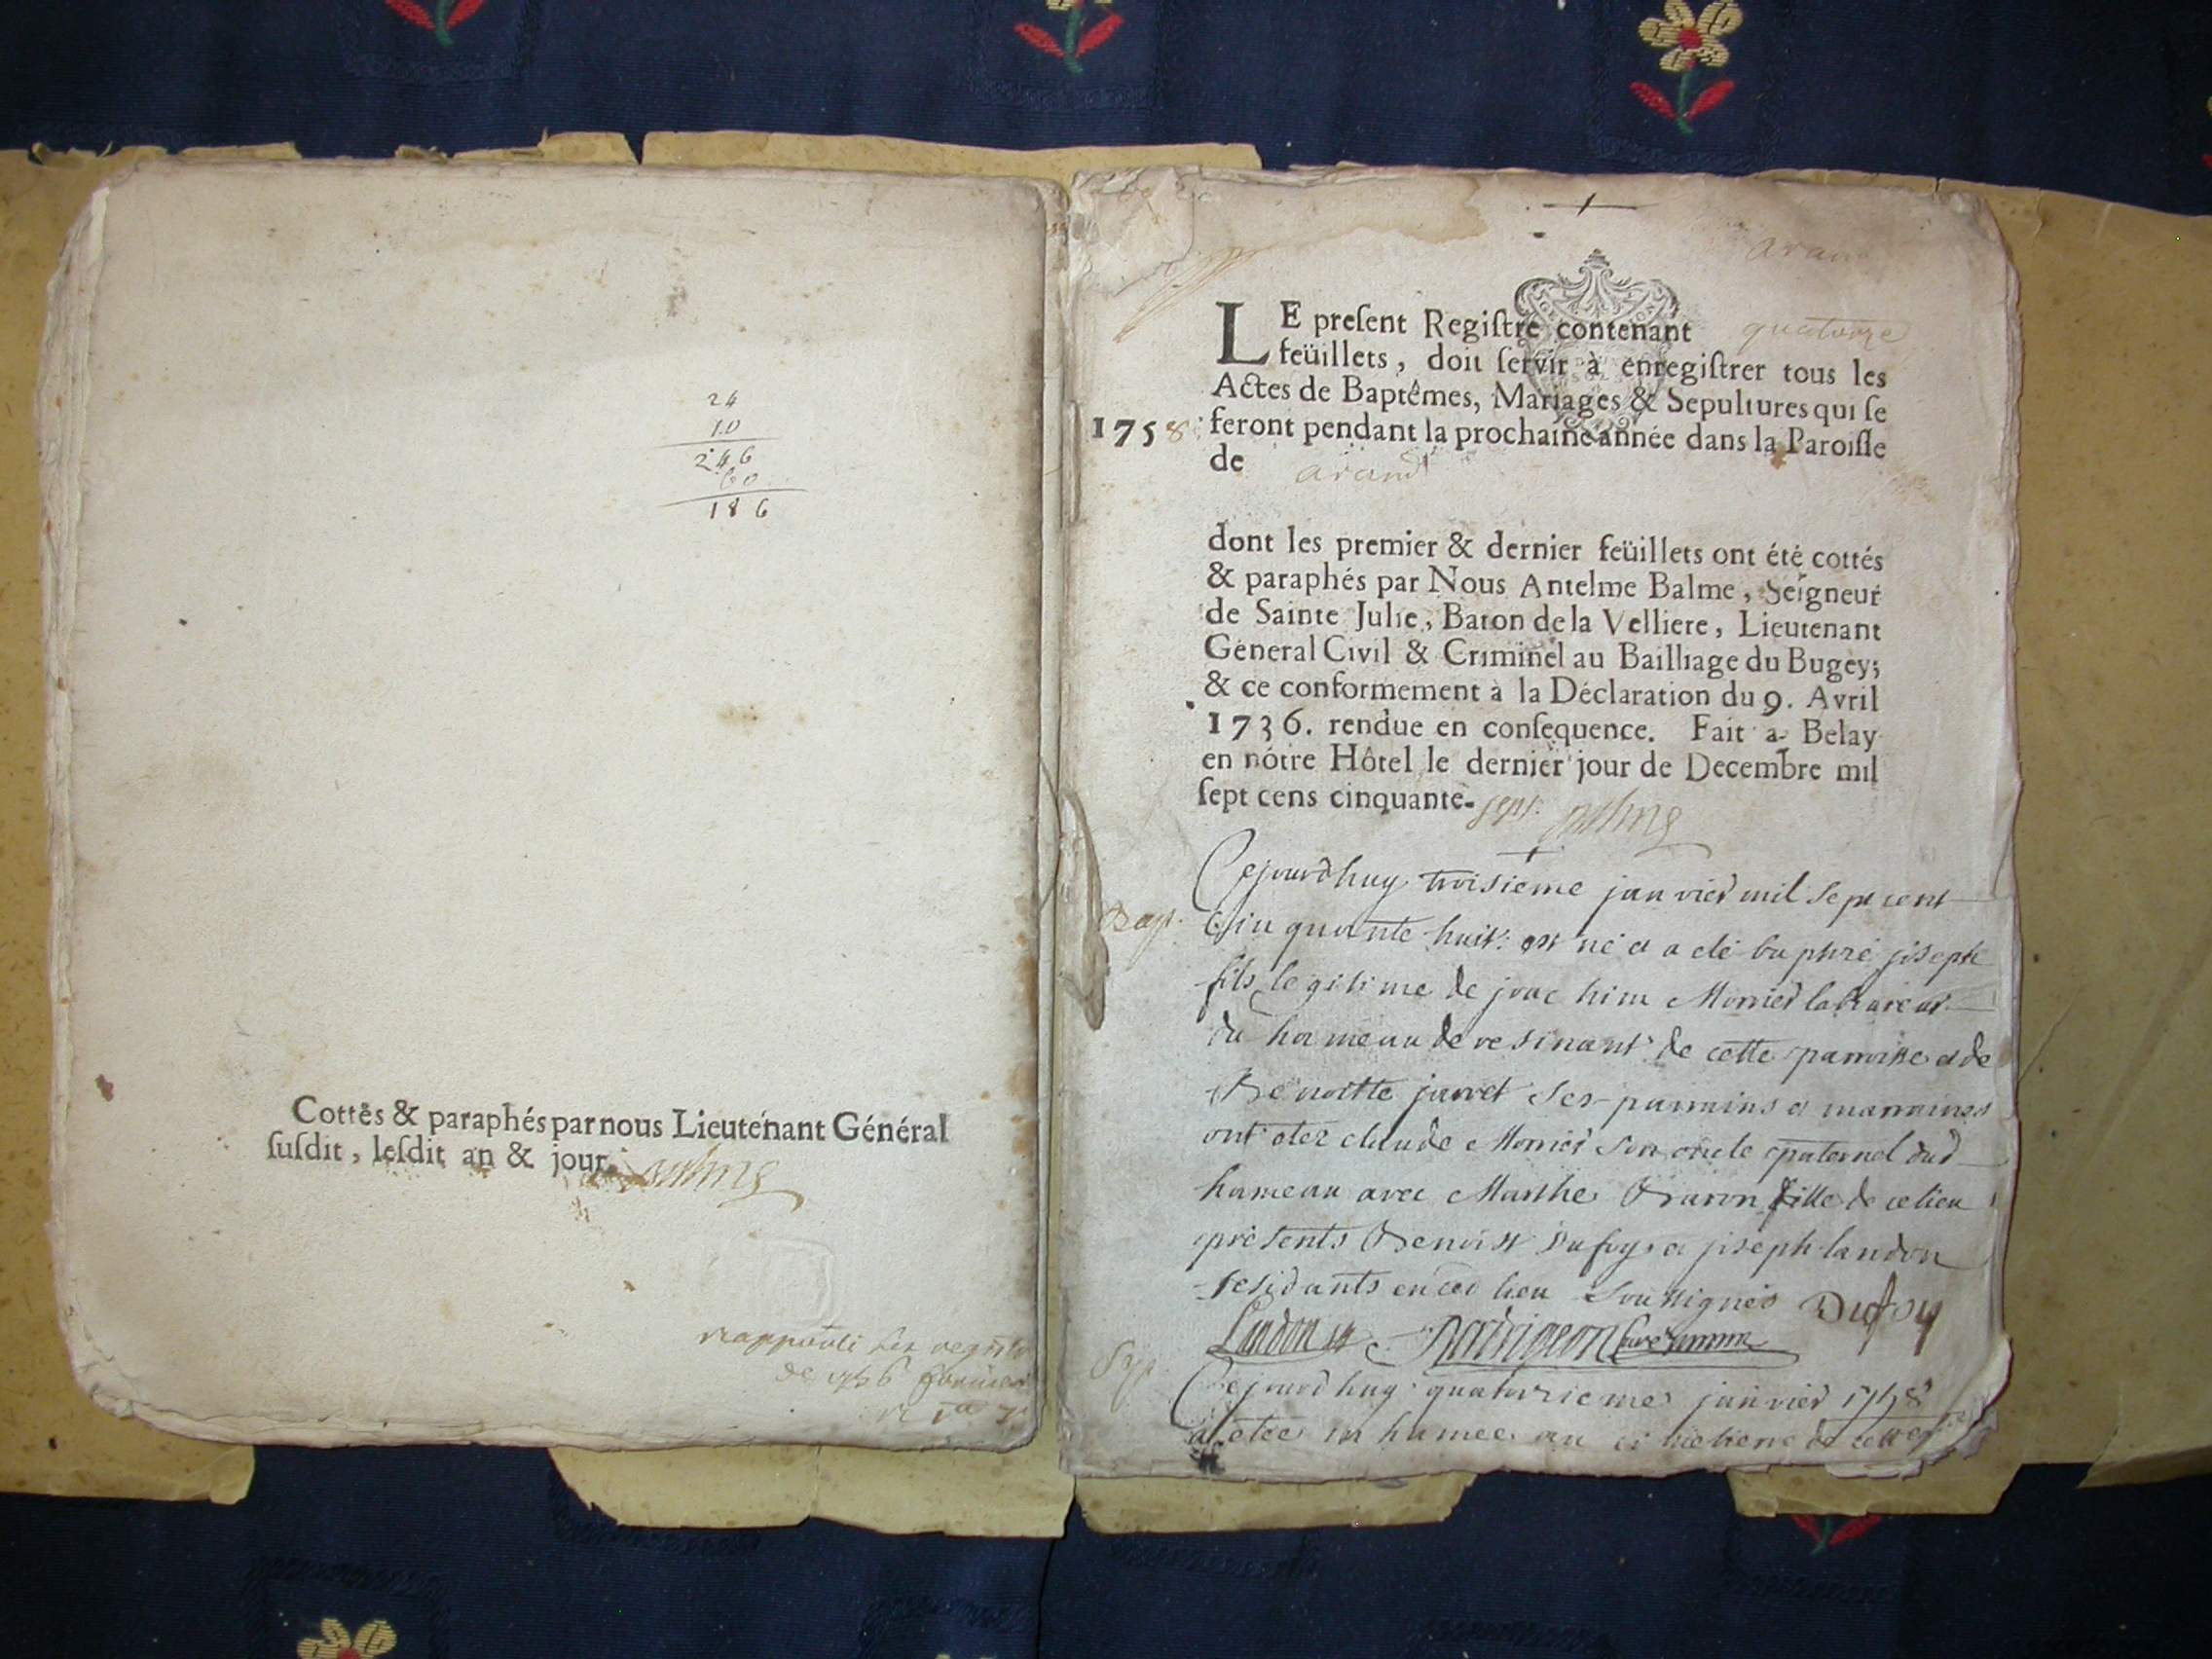 24
10
246
60
186
Cottés & paraphés par nous Lieutenant Général
ſuſdit, leſdit an & jour. Balme
arand
LE preſent Regiſtre contenant quatorze
feüillets, doit ſervir à enregiſtrer tous les
Actes de Baptêmes, Mariages & Sepultures qui ſe
1758 feront pendant la prochaine année dans la Paroiſſe
de arand
dont les premier & dernier feüillets ont été cottés
& paraphés par Nous Antelme Balme, Seigneur
de Sainte Julie, Baron de la Velliere, Lieutenant
Géneral Civil & Criminel au Bailliage du Bugey;
& ce conformement à la Déclaration du 9. Avril
1736. rendue en conſequence. Fait a Belay
en nôtre Hôtel le dernier jour de Decembre mil
ſept cens cinquante-sept. Balme
Cejourdhuy troisieme janvier mil sept cent
Bap. Cinquante huit est né et a eté baptizé joseph
fils legitime de joachim Monier laboureur
du hameau de resinant de cette parroisse et de
Benoitte jarret ses parrains et marraines
ont etez claude Monier son oncle paternel dud
hameau avec Marthe Baron fille de ce lieu
présents Benoist Dufoy et joseph landon
residants en ced lieu soussignés Dufoy
Landon
Sep. Cejourdhuy quatorzieme janvier 1758
a étée inhumée au cimetiere de cette